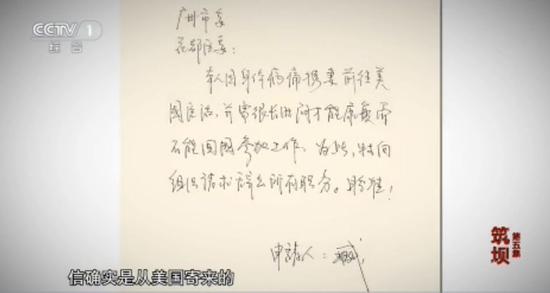 CCTV 1
综合
广州市委
花都区委:
本人因身体病痛携妻前往美
国医治,并需很长时间才能康复而
不能回国参加工作。为此,特向
组织请求辞去所有职务。盼准!
申请人:
信确实是从美国寄来的
筑坝
第五集